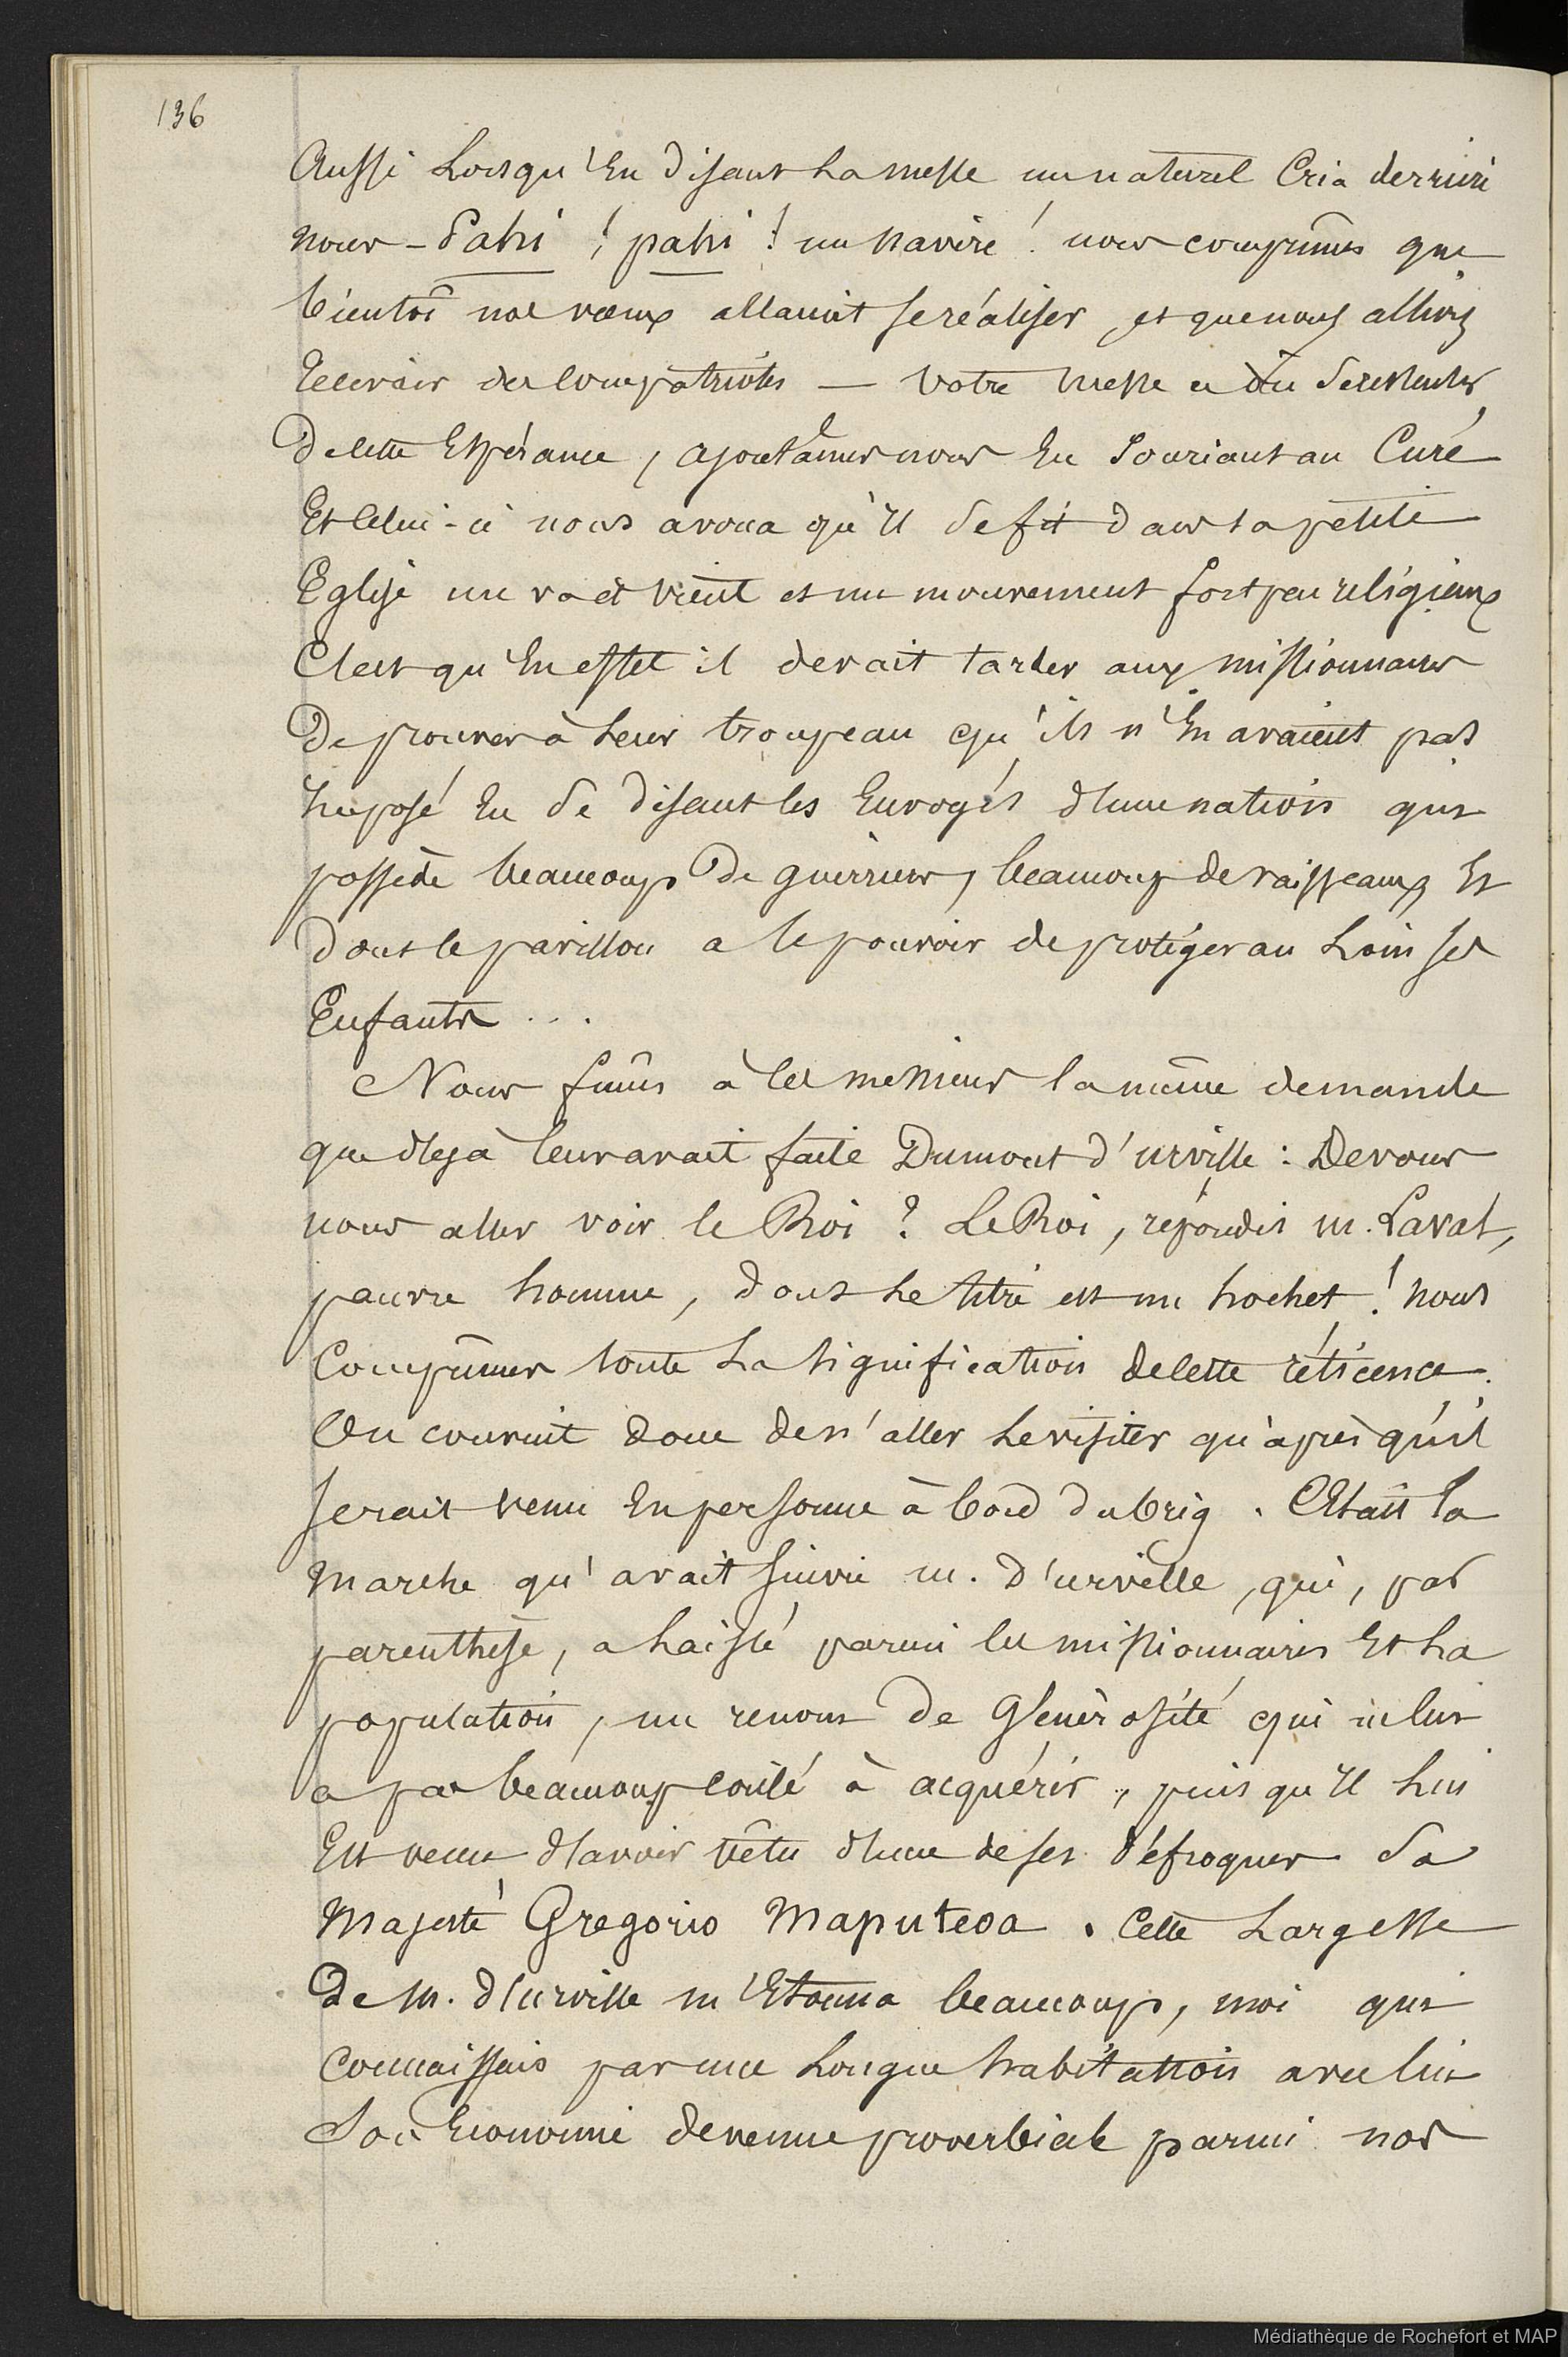 136
Aussi Lorsqu'en disant La messe un naturel Cria derriere
nous - Pahi ! pahi ! un navire ! nous comprîmes que
bientôt nos vœux allaient se réaliser, et que nous allions
recevoir des compatriotes — Votre messe a dû se ressentir
de cette Espérance, ajoutâmes nous En Souriant au Curé
Et celui-ci nous avoua qu'Il se fit dans sa petite
Eglise un va et vient et un mouvement fort peu religieux
C'est qu'En effet il devait tarder aux missionnaires
De prouver à Leur troupeau qu'ils n'En avaient pas
Imposé En se disant les Envoyés d'une nation qui
possède beaucoup De guerriers, beaucoup de vaisseaux Et
Dont le pavillon a le pouvoir de protéger au Loin ses
Enfants ...
Nous fîmes à ces messieurs la même demande
que déjà leur avait faite Dumont d'urville : Devons
nous aller voir le Roi ? Le Roi, répondit m. Laval,
pauvre homme, dont Le titre est un hochet ! nous
Comprîmes toute La signification de cette réticence.
On convint donc de n'aller Le visiter qu'après qu'il
serait venu En personne à bord du brig. C'était la
marche qu'avait suivie m. d'urville, qui, par
parenthèse, a Laissé parmi les missionnaires Et La
population, un renom de Générosité qui ne lui
a pas beaucoup coûté à acquérir, puis qu'Il Lui
Est venu d'avoir vêtu d'une de ses défroques Sa
Majesté Gregorio Maputeoa. Cette Largesse
De M. d'urville m'Etonna beaucoup, moi qui
Connaissais par une Longue habitation avec lui
Son Economie devenue proverbiale parmi nos
Médiathèque de Rochefort et MAP